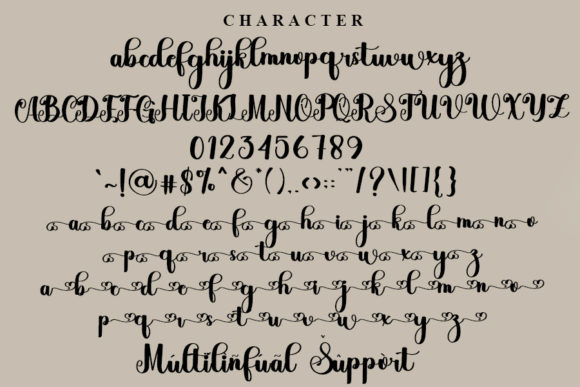 CHARACTER
abcdefghijklmnopqrstuvwxyz
ABCDEFGHIJKLMNOPQRSTUVWXYZ
0123456789
`~!@#$%^&*(),.<>:;'"/?\|[]{}
a b c d e f g h i j k l m n o
p q r s t u v w x y z
a b c d e f g h i j k l m n o
p q r s t u v w x y z
Múltïlïñfúãl Šûppòrt